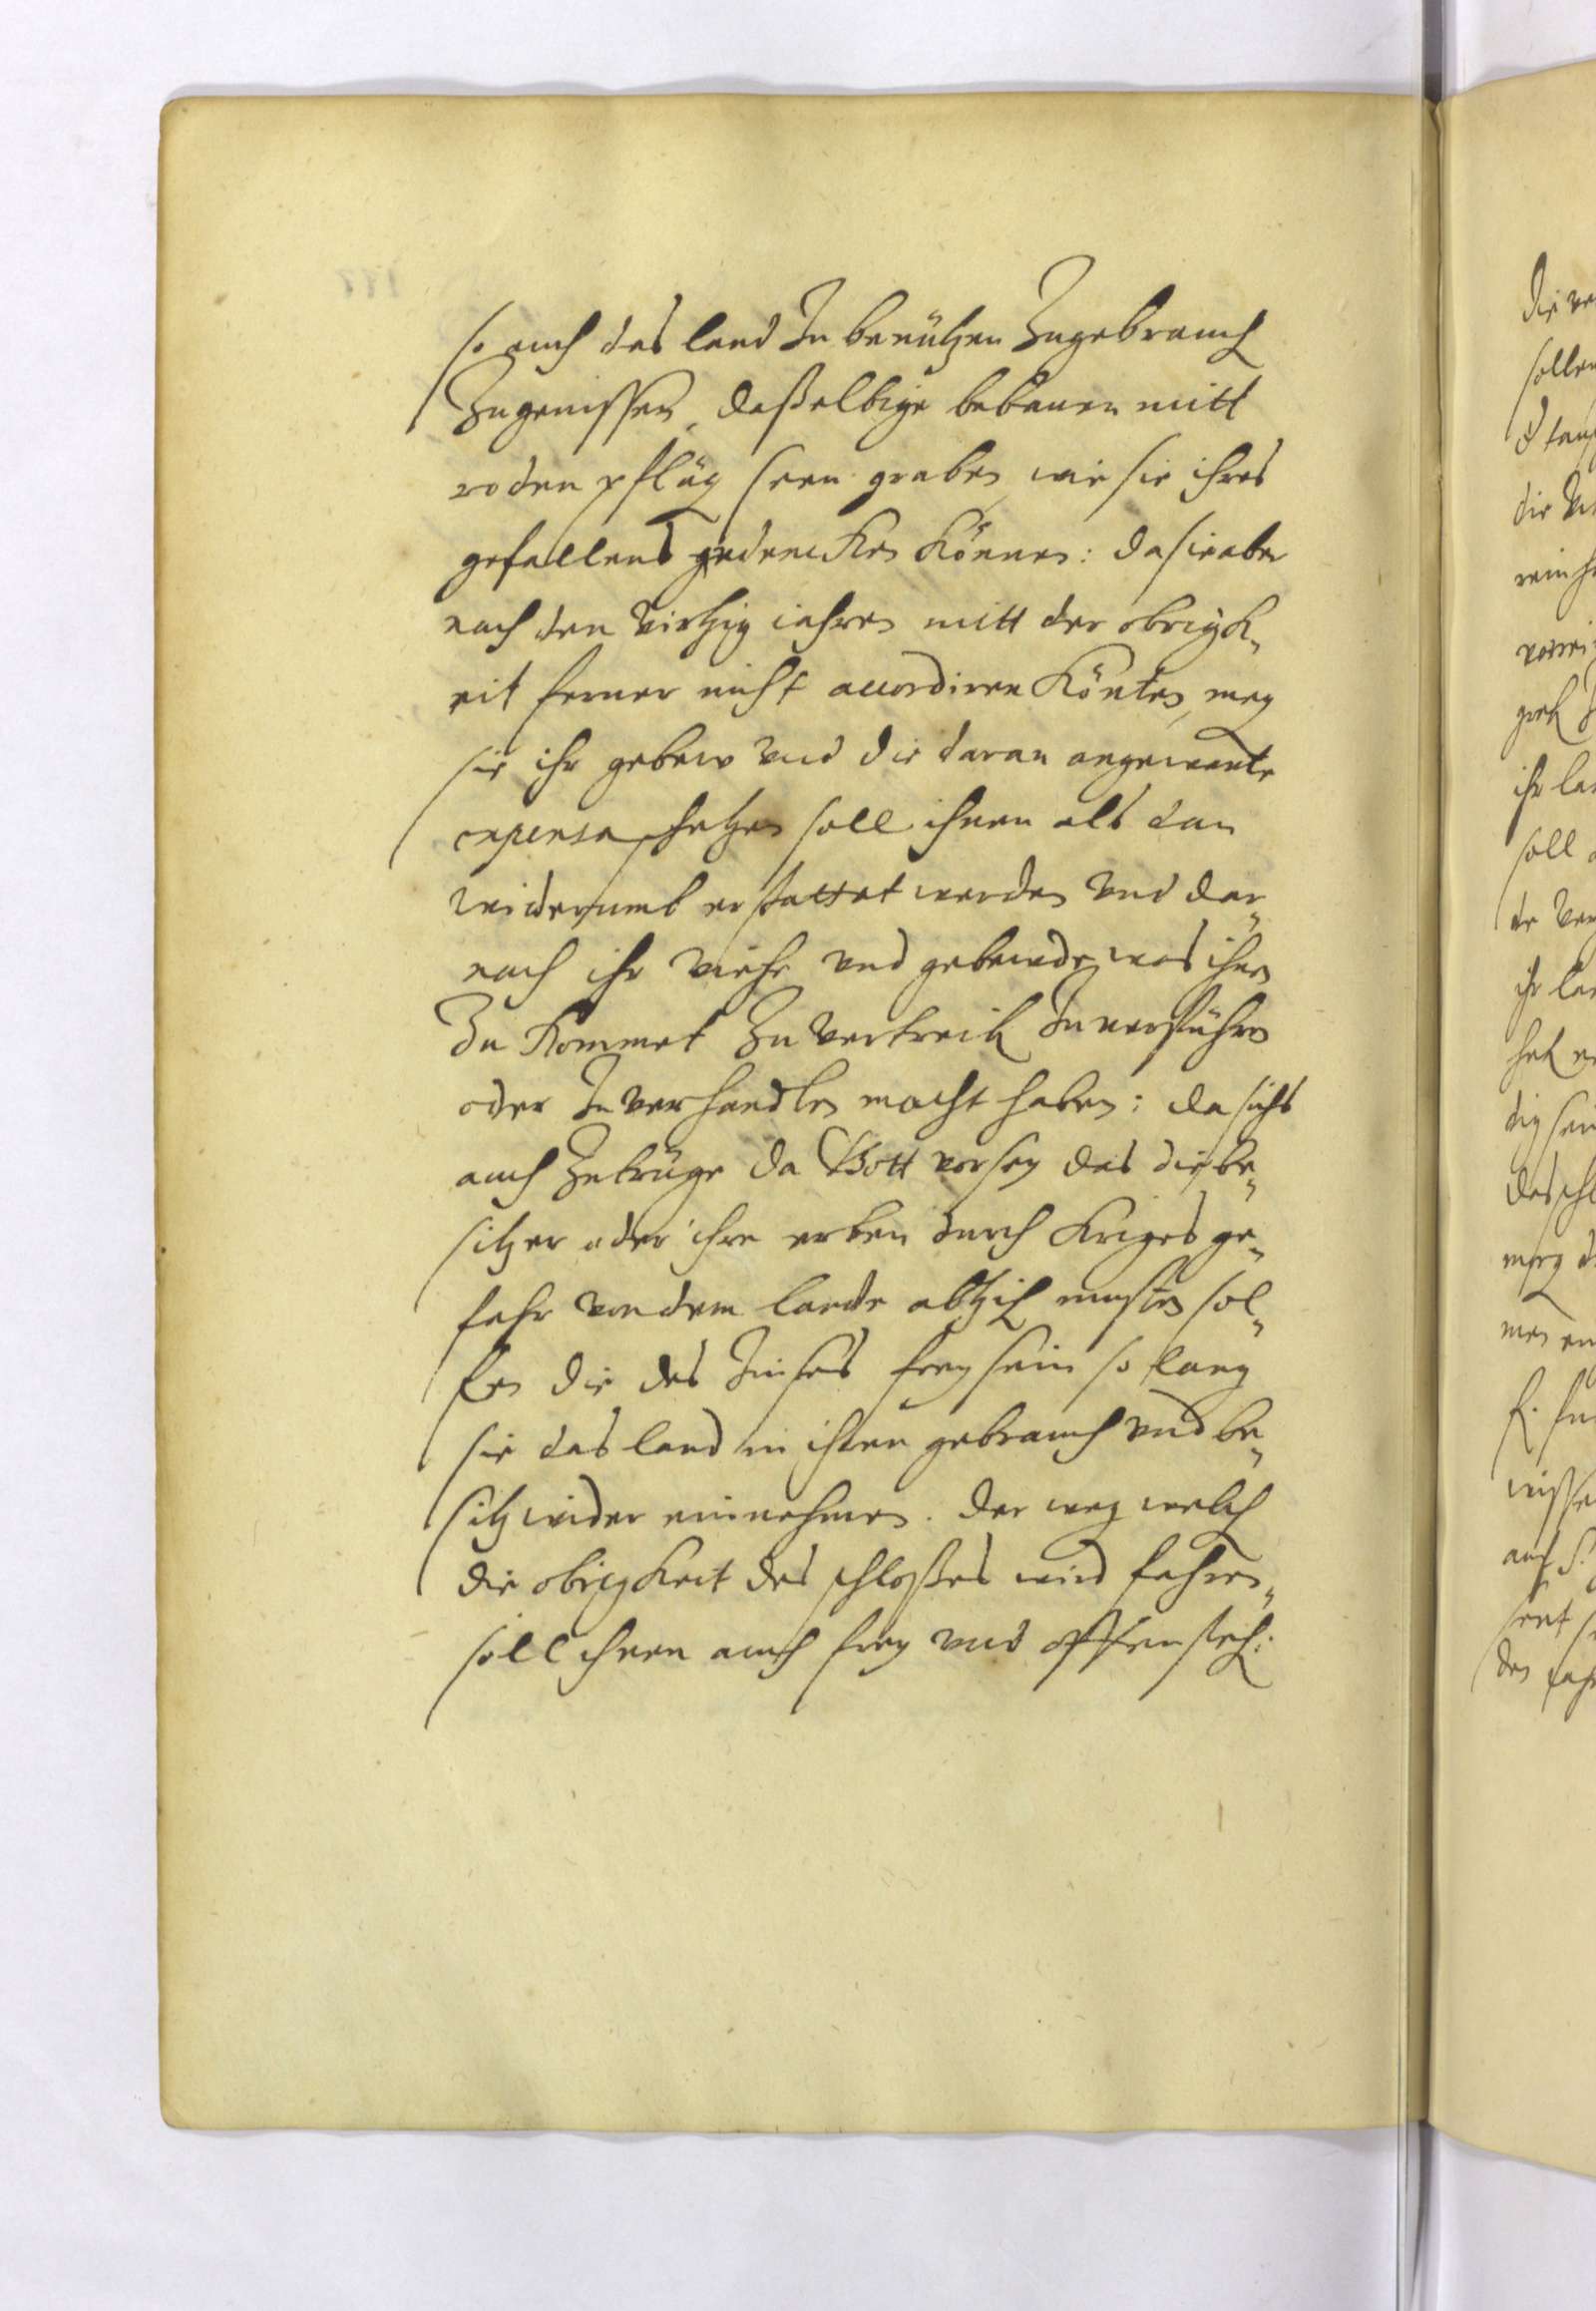 so auch das land Zu benützen Zugebrauch
Zugenissen, daßelbige bebauen mitt
roden pflüg seen graben, wie sie ihres
gefallens gedencken Können: da sie aber
nach den virtzig iahren mitt der obrigk„
eit ferner nicht accordiren Könten, mag
sie ihr gebew vnd die daran angewante
expensa schetzen soll ihnen als dan
widerumb erstattet werden vnd dar„
nach ihr viehe vnd gebewde was ihnen
Zu Kommet Zu vertreib Zu verführen
oder Zu verhandlen macht haben: da sichs
auch Zutrüge da Gott vorsey das die be„
sitzer oder ihre erben durch Kriges ge„
fahr von dem lande abtzih musten sol„
len die des Zinses frey sein so lang
sie das land in ihren gebrauch vnd be„
sitz wider einnehmen. der weg welch
die obrigkeit des schloßes wird fahren„
soll ihnen auch frey vnd offen steh: